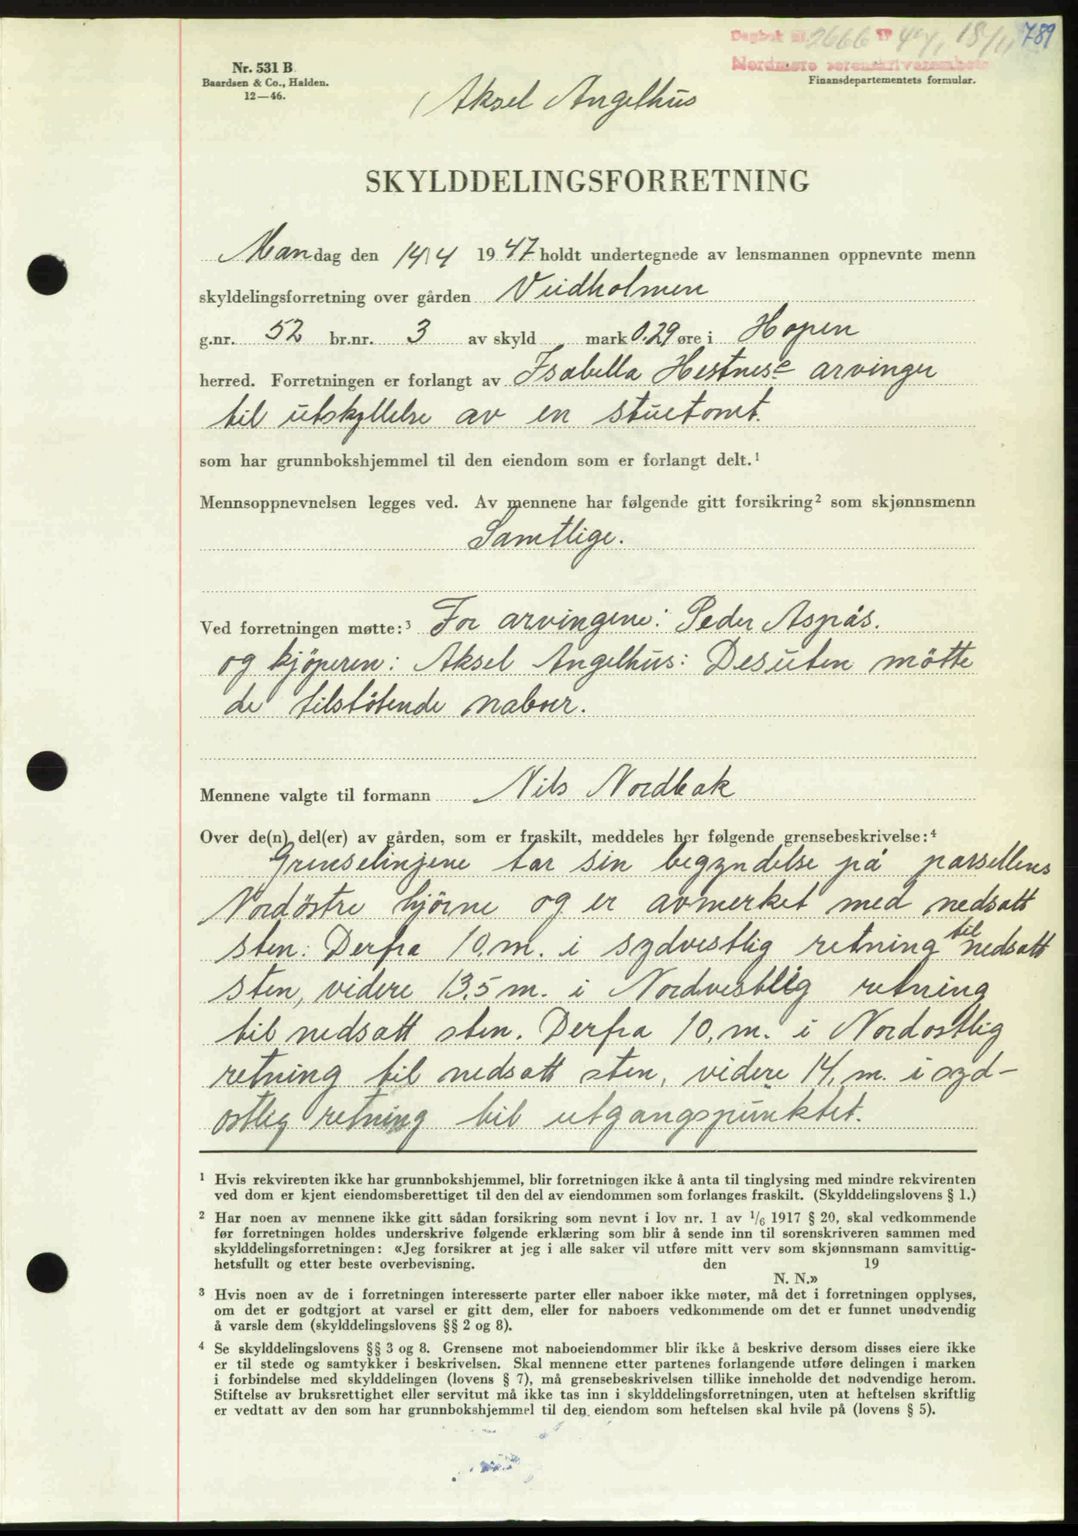 Dagbok nr. 2666 19 47, 18/11 789
Nordmøre sorenskriverembete
Nr. 531 B
Baardsen & Co., Halden.
12—46.
Finansdepartementets formular.
Aksel Angelhus
SKYLDDELINGSFORRETNING
Mandag den 14/4 1947 holdt undertegnede av lensmannen oppnevnte menn
skyldelingsforretning over gården Veidholmen
g.nr. 52 br.nr. 3 av skyld mark 0.29 øre i Hopen
herred. Forretningen er forlangt av Isabella Hestnes arvinger
til utskyllelse av en stuetomt.
som har grunnbokshjemmel til den eiendom som er forlangt delt.¹
Mennsoppnevnelsen legges ved. Av mennene har følgende gitt forsikring² som skjønnsmenn
Samtlige.
Ved forretningen møtte:³ For arvingene: Peder Aspås.
og kjöperen: Aksel Angelhus: Desuten mötte
de tilstötende naboer.
Mennene valgte til formann Nils Nordbak
Over de(n) del(er) av gården, som er fraskilt, meddeles her følgende grensebeskrivelse:⁴
Grenselinjene tar sin begyndelse på parsellens
Nordöstre hjörne og er avmerket med nedsatt
sten. Derfra 10,m. i sydvestlig retning til nedsatt
sten, videre 13,5 m. i Nordvestlig retning
til nedsatt sten. Derfra 10,m. i Nordostlig
retning til nedsatt sten, videre 14,m. i syd-
ostlig retning til utgangspunktet.
¹ Hvis rekvirenten ikke har grunnbokshjemmel, blir forretningen ikke å anta til tinglysing med mindre rekvirenten
ved dom er kjent eiendomsberettiget til den del av eiendommen som forlanges fraskilt. (Skylddelingslovens § 1.)
² Har noen av mennene ikke gitt sådan forsikring som nevnt i lov nr. 1 av 1/6 1917 § 20, skal vedkommende
før forretningen holdes underskrive følgende erklæring som blir å sende inn til sorenskriveren sammen med
skylddelingsforretningen: «Jeg forsikrer at jeg i alle saker vil utføre mitt verv som skjønnsmann samvittig-
hetsfullt og etter beste overbevisning. den 19
N. N.»
³ Hvis noen av de i forretningen interesserte parter eller naboer ikke møter, må det i forretningen opplyses,
om det er godtgjort at varsel er gitt dem, eller for naboers vedkommende om det er funnet unødvendig
å varsle dem (skylddelingslovens §§ 2 og 8).
⁴ Se skylddelingslovens §§ 3 og 8. Grensene mot naboeiendommer blir ikke å beskrive dersom disses eiere ikke
er til stede og samtykker i beskrivelsen. Skal mennene etter partenes forlangende utføre delingen i marken
i forbindelse med skylddelingen (lovens § 7), må grensebeskrivelsen tillike inneholde det nødvendige herom.
Stiftelse av bruksrettighet eller servitut må ikke tas inn i skylddelingsforretningen, uten at heftelsen skriftlig
er vedtatt av den som har grunnbokshjemmel til den eiendom som heftelsen skal hvile på (lovens § 5).